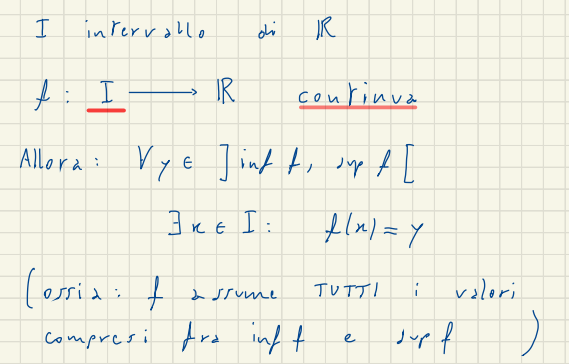 I intervallo di ℝ
f : I ⟶ ℝ continua
Allora : ∀ y ∈ ] inf f, sup f [
∃ x ∈ I : f(x) = y
(ossia : f assume TUTTI i valori
compresi fra inf f e sup f )